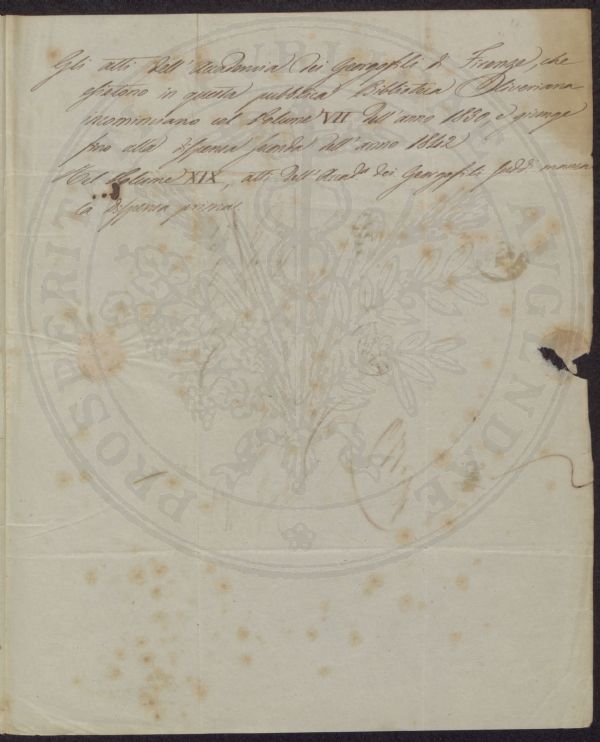 Gli atti dell'Accademia dei Georgofili di Firenze, che
esistono in questa pubblica Biblioteca Oliveriana
incominciano col Volume VII dell'anno 1830, e giunge
fino alla dispensa seconda dell'anno 1842
Nel Volume XIX, atti dell'Accad.a dei Georgofili sudd.i manca
la dispensa prima
PROSPERITATI PUBLICAE AUGENDAE